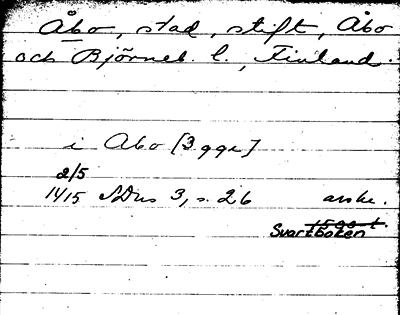 Åbo, stad, stift, Åbo
och Björneb. l., Finland.
i Abo [3 ggr]
2/5
1415 SDns 3, s. 26 avskr.
Svartboken